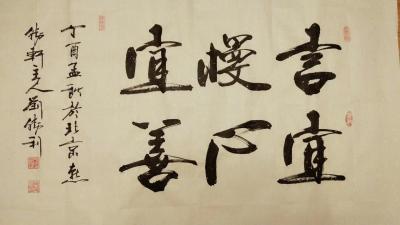 言宜
慢心
宜善
丁酉孟秋於北京燕
勝軒主人劉勝利